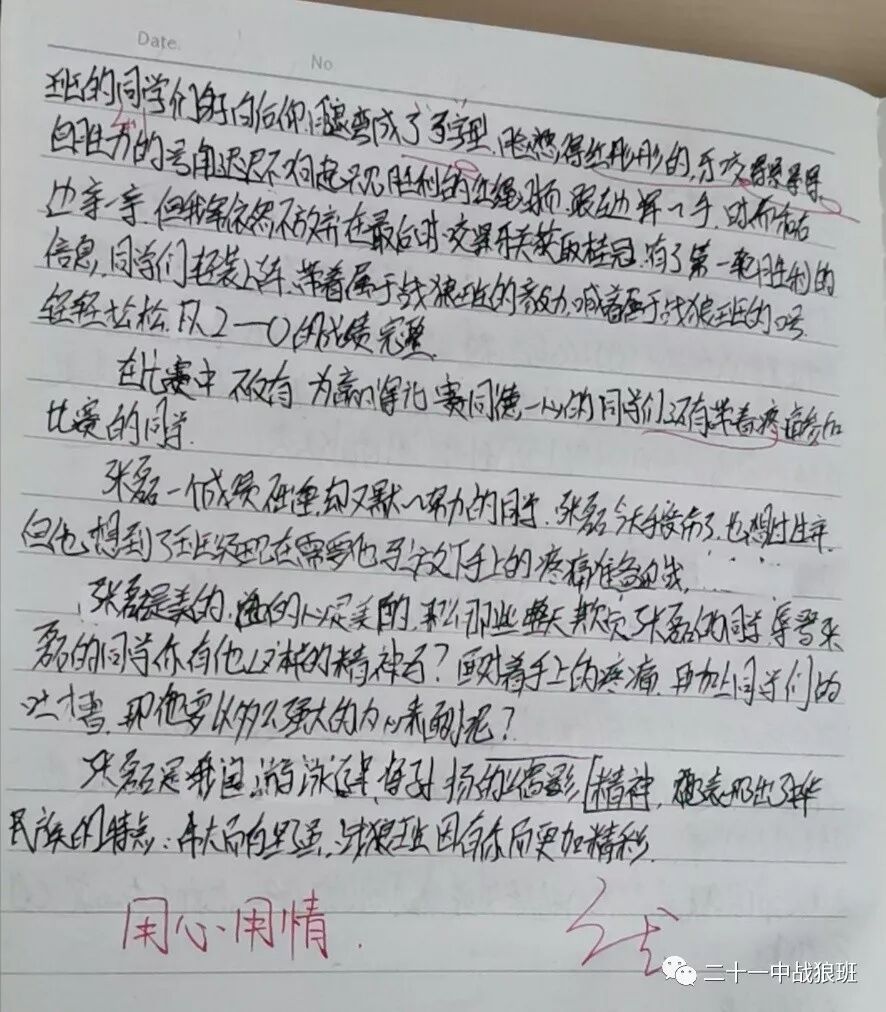 Date.
No
班的同学们身子向后仰,腿变成了弓字型,脸憋得红彤彤的,牙咬得
但胜方的号角迟迟不响起 只见胜利的红绳 跟左边挥一手,时而和右
边亲一亲,但我军依然不放弃在最后时 获取桂冠,有了第一轮胜利的
信息,同学们轻装上阵,带着属于战狼班的 喊着属于战狼班的口号
轻轻松松,以2—0的战绩完整.
在比赛中 不仅有 为 赛同德一心的同学们还有带着疼痛参加
比赛的同学.
张磊一个成绩 却又默默努力的同学,张磊今天手受伤了,也想过
但他想到了班级现在需要他 放下手上的疼痛准备 战......
张磊是美的,他的心灵是美的,那么那些整天欺负张磊的同学,辱骂张
磊的同学你有他这样的精神吗?面对着手上的疼痛,再加上同学们的
吐槽,那他要以多么强大的内心来面对呢?
张磊是我国游泳健 孙杨的缩影[精神, 表现出了中华
民族的特点: 大而自强,战狼班因有你而更加精彩.
用心用情.
二十一中战狼班